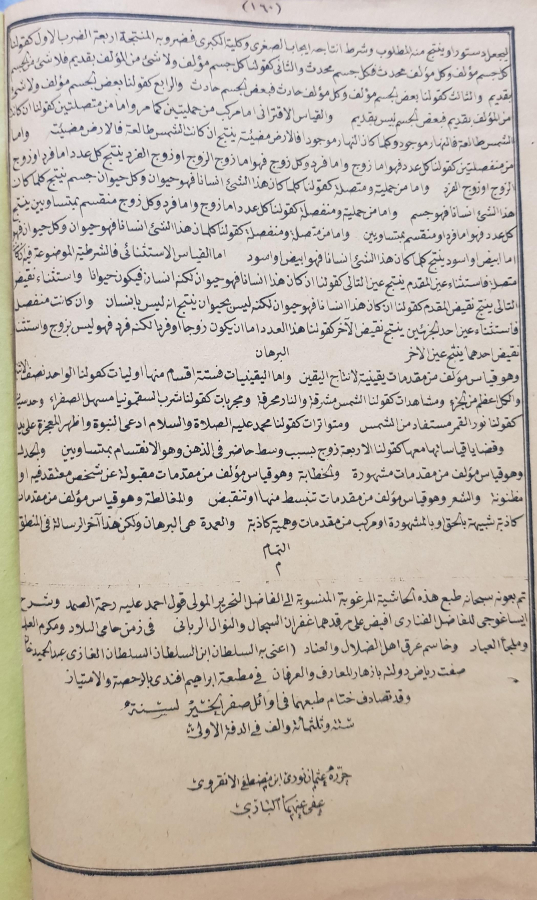 (١٦٠)
ليجعل دستورا وينتج منه المطلوب وشرط انتاجه ايجاب الصغرى وكلية الكبرى فضروبه المنتجة اربعة الضرب الاول كقولنا
كل جسم مؤلف وكل مؤلف محدث فكل جسم محدث والثانى كقولنا كل جسم مؤلف ولا شئ من المؤلف بقديم فلا شئ من الجسم
بقديم والثالث كقولنا بعض الجسم مؤلف وكل مؤلف حادث فبعض الجسم حادث والرابع كقولنا بعض الجسم مؤلف ولا شئ
من المؤلف بقديم فبعض الجسم ليس بقديم والقياس الاقترانى اما مركب من حمليتين كما مر واما من متصلتين كقولنا ان كانت
الشمس طالعة فالنهار موجود وكلما كان النهار موجودا فالارض مضيئة ينتج ان كانت الشمس طالعة فالارض مضيئة واما
من منفصلتين كقولنا كل عدد فهو اما زوج واما فرد وكل زوج فهو اما زوج الزوج او زوج الفرد ينتج كل عدد اما فرد او زوج
الزوج او زوج الفرد واما من حملية ومتصلة كقولنا كلما كان هذا الشئ انسانا فهو حيوان وكل حيوان جسم ينتج كلما كان
هذا الشئ انسانا فهو جسم واما من حملية ومنفصلة كقولنا كل عدد اما زوج واما فرد وكل زوج منقسم بمتساويين ينتج
كل عدد فهو اما فرد او منقسم بمتساويين واما من متصلة ومنفصلة كقولنا كلما كان هذا الشئ انسانا فهو حيوان وكل حيوان فهو
اما ابيض او اسود ينتج كلما كان هذا الشئ انسانا فهو ابيض او اسود اما القياس الاستثنائى فالشرطية الموضوعة فيه ان كانت
متصلة فاستثناء عين المقدم ينتج عين التالى كقولنا ان كان هذا انسانا فهو حيوان لكنه انسان فيكون حيوانا واستثناء نقيض
التالى ينتج نقيض المقدم كقولنا ان كان هذا انسانا فهو حيوان لكنه ليس بحيوان ينتج انه ليس بانسان وان كانت منفصلة
فاستثناء عين احد الجزئين ينتج نقيض الآخر كقولنا هذا العدد اما ان يكون زوجا او فردا لكنه فرد فهو ليس بزوج واستثناء
نقيض احدهما ينتج عين الآخر البرهان
وهو قياس مؤلف من مقدمات يقينية لانتاج اليقين واما اليقينيات فستة اقسام منها اوليات كقولنا الواحد نصف الاثنين
والكل اعظم من الجزء ومشاهدات كقولنا الشمس مشرقة والنار محرقة ومجربات كقولنا شرب السقمونيا مسهل الصفراء وحدسيات
كقولنا نور القمر مستفاد من الشمس ومتواترات كقولنا محمد عليه الصلاة والسلام ادعى النبوة واظهر المعجزة على يده
وقضايا قياساتها معها كقولنا الاربعة زوج بسبب وسط حاضر فى الذهن وهو الانقسام بمتساويين والجدل
وهو قياس مؤلف من مقدمات مشهورة والخطابة وهو قياس مؤلف من مقدمات مقبولة عن شخص معتقد فيه او
مظنونة والشعر وهو قياس مؤلف من مقدمات تنبسط منها او تنقبض والمغالطة وهو قياس مؤلف من مقدمات
كاذبة شبيهة بالحق او بالمشهورة او مركب من مقدمات وهمية كاذبة والعمدة هى البرهان وليكن هذا آخر الرسالة فى المنطق
التمام
م
تم بعونه سبحانه طبع هذه الحاشية المرغوبة المنسوبة الى الفاضل النحرير المولى قول احمد عليه رحمة الصمد وشرح
ايساغوجى للفاضل الفنارى افيض على مرقدهما غفران السبحال والنوال الربانى فى زمن حامى البلاد ومكرم العباد
وملجأ العباد وخاسم عرقى اهل الضلال والعناد (اعنى به السلطان ابن السلطان السلطان الغازى عبد الحميد خان)
صفت رياض دولته بازهار المعارف والعرفان فى مطبعة ابراهيم افندى بالرخصة والامتياز
وقد تصادف ختام طبعهما فى اوائل صفر الخير لسنة
وثلثمائة والف فى الدفة الاولى
حرره عثمان نورى ابن مصطفى الانقروى
عفى عنهما البارى